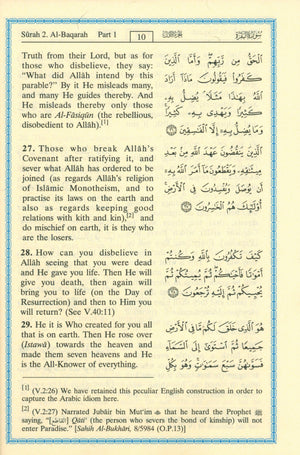 Sûrah 2. Al-Baqarah Part 1 10 سورة البقرة
Truth from their Lord, but as for
those who disbelieve, they say:
"What did Allâh intend by this
parable?" By it He misleads many,
and many He guides thereby. And
He misleads thereby only those
who are Al-Fâsiqûn (the rebellious,
disobedient to Allâh).[1]
27. Those who break Allâh's
Covenant after ratifying it, and
sever what Allâh has ordered to be
joined (as regards Allâh's religion
of Islâmic Monotheism, and to
practise its laws on the earth and
also as regards keeping good
relations with kith and kin),[2] and
do mischief on earth, it is they who
are the losers.
28. How can you disbelieve in
Allâh seeing that you were dead
and He gave you life. Then He will
give you death, then again will
bring you to life (on the Day of
Resurrection) and then to Him you
will return? (See V.40:11)
29. He it is Who created for you all
that is on earth. Then He rose over
(Istawâ) towards the heaven and
made them seven heavens and He
is the All-Knower of everything.
الْحَقُّ مِن رَّبِّهِمْ وَأَمَّا الَّذِينَ
كَفَرُوا فَيَقُولُونَ مَاذَا أَرَادَ
اللَّهُ بِهَٰذَا مَثَلًا يُضِلُّ بِهِ
كَثِيرًا وَيَهْدِي بِهِ كَثِيرًا
وَمَا يُضِلُّ بِهِ إِلَّا الْفَاسِقِينَ
الَّذِينَ يَنقُضُونَ عَهْدَ اللَّهِ مِن بَعْدِ
مِيثَاقِهِ وَيَقْطَعُونَ مَا أَمَرَ اللَّهُ بِهِ
أَن يُوصَلَ وَيُفْسِدُونَ فِي الْأَرْضِ
أُولَٰئِكَ هُمُ الْخَاسِرُونَ
كَيْفَ تَكْفُرُونَ بِاللَّهِ وَكُنتُمْ
أَمْوَاتًا فَأَحْيَاكُمْ ثُمَّ يُمِيتُكُمْ ثُمَّ
يُحْيِيكُمْ ثُمَّ إِلَيْهِ تُرْجَعُونَ
هُوَ الَّذِي خَلَقَ لَكُم مَّا فِي الْأَرْضِ
جَمِيعًا ثُمَّ اسْتَوَىٰ إِلَى السَّمَاءِ
فَسَوَّاهُنَّ سَبْعَ سَمَاوَاتٍ وَهُوَ بِكُلِّ
[1] (V.2:26) We have retained this peculiar English construction in order to
capture the Arabic idiom here.
[2] (V.2:27) Narrated Jubâir bin Mut'im that he heard the Prophet ﷺ
saying, " Qâti' (the person who severs the bond of kinship) will not
enter Paradise." [Sahîh Al-Bukhâri, 8/5984 (O.P.13)]